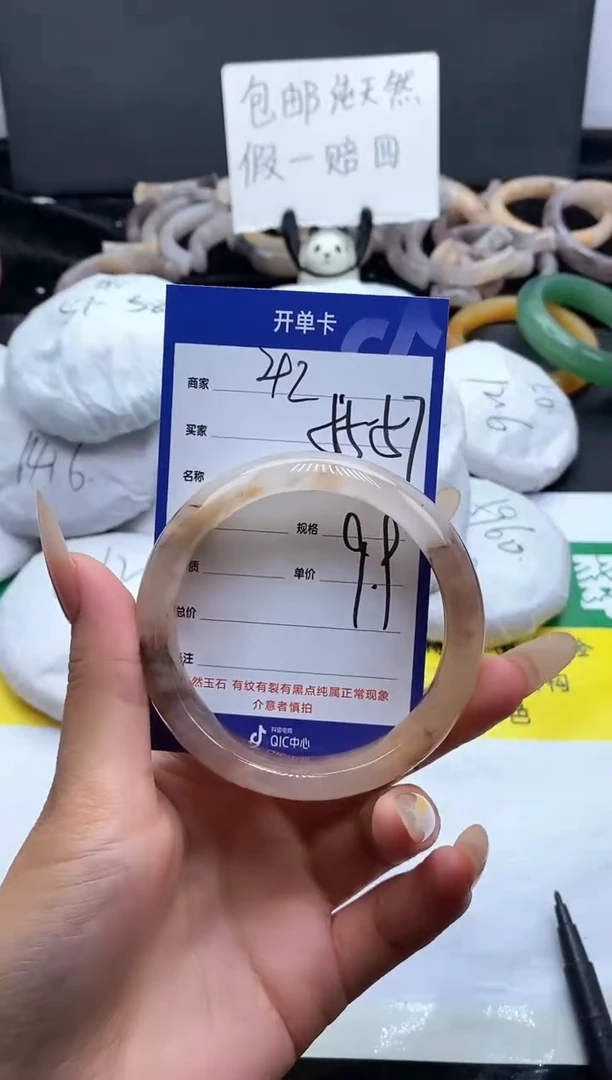 包邮纯天然
假一赔四
开单卡
商家 242
买家
名称
规格 9.9
质 单价
总价
注
然玉石 有纹有裂有黑点纯属正常现象
介意者慎拍
抖音电商
QIC中心
1416.
1960.
翠